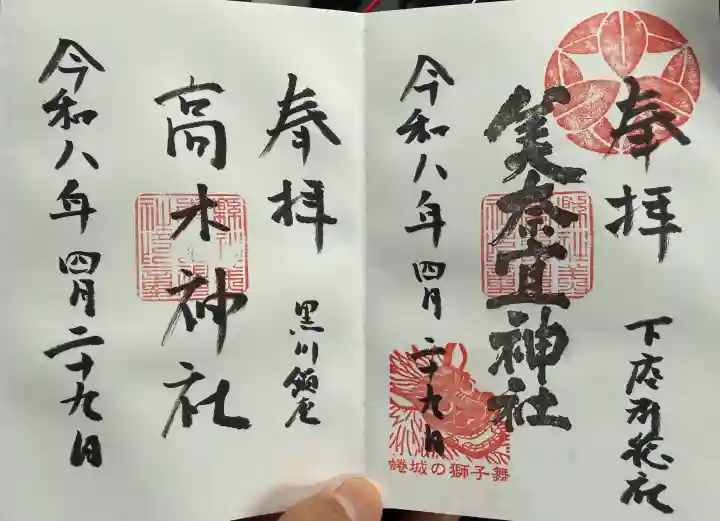 奉拝
下座所花社
美奈宜神社
令和八年四月二十九日
蜷城の獅子舞
奉拝
黒川鎮座
高木神社
令和八年四月二十九日